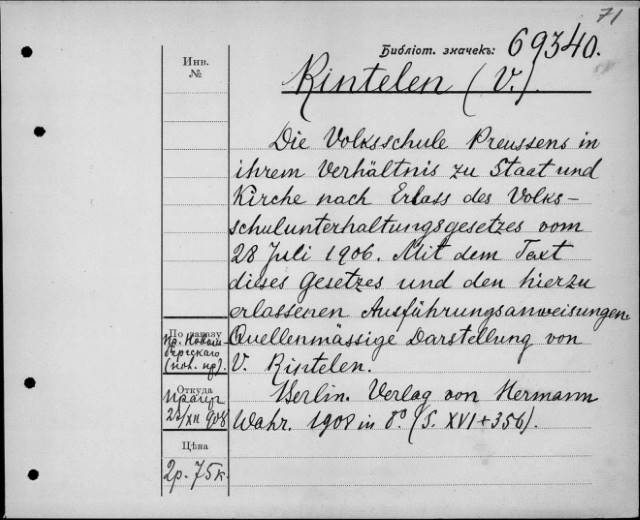 71
Библіот. значекъ: 69340.
Инв.
№
Rintelen (V.).
Die Volksschule Preussens in
ihrem Verhältnis zu Staat und
Kirche nach Erlass des Volks-
schulunterhaltungsgesetzes vom
28 Juli 1906. Mit dem Text
dieses Gesetzes und den hierzu
erlassenen Ausführungsanweisungen.
Quellenmässige Darstellung von
V. Rintelen.
Berlin. Verlag von Hermann
Wahr. 1908 in 8° (S. XVI+356).
По заказу
Откуда
Прагер
22/XII 908
Цѣна
2р. 75к.